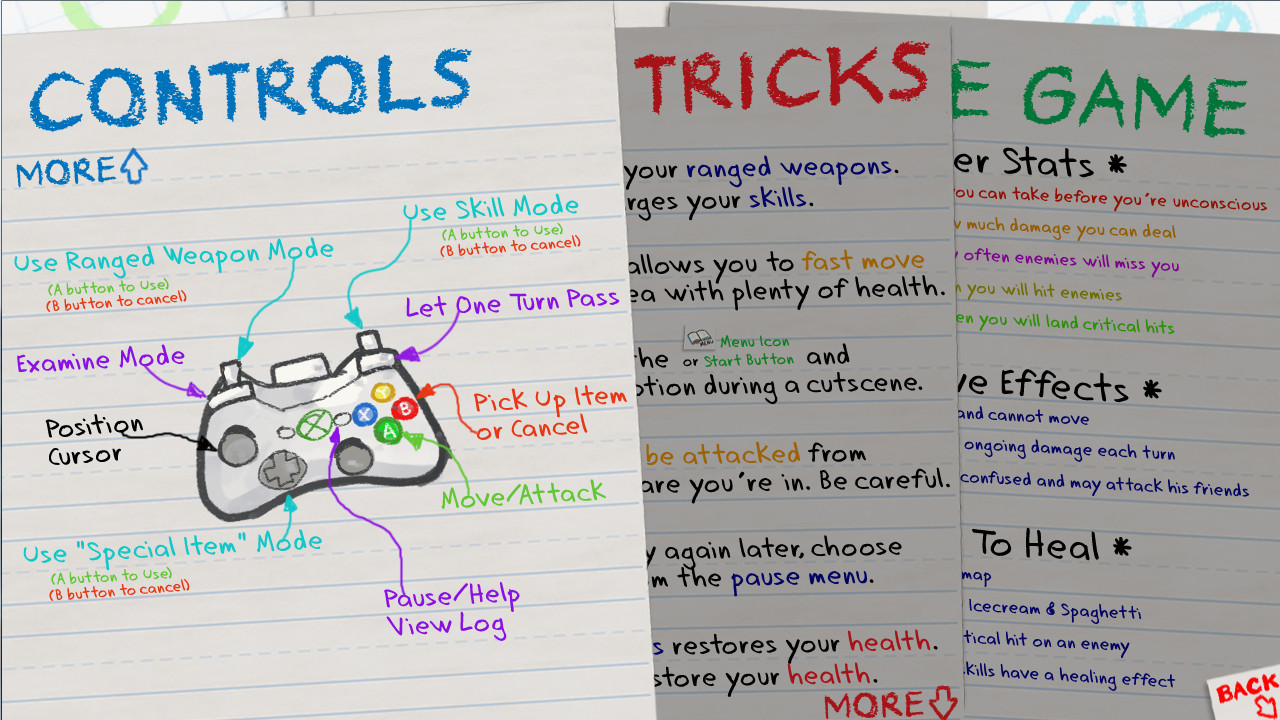 CONTROLS
MORE
Use Skill Mode
(A button to Use)
(B button to cancel)
Use Ranged Weapon Mode
(A button to Use)
(B button to cancel)
Let One Turn Pass
Examine Mode
Pick Up Item
or Cancel
Position
Cursor
Y
X
B
A
Move/Attack
Use "Special Item" Mode
(A button to Use)
(B button to cancel)
Pause/Help
View Log
TRICKS
your ranged weapons.
rges your skills.
allows you to fast move
ea with plenty of health.
MENU
Menu Icon
the or Start Button and
ption during a cutscene.
be attacked from
are you're in. Be careful.
y again later, choose
m the pause menu.
s restores your health.
store your health.
MORE
E GAME
er Stats *
ou can take before you're unconscious
w much damage you can deal
y often enemies will miss you
n you will hit enemies
en you will land critical hits
ve Effects *
and cannot move
ongoing damage each turn
confused and may attack his friends
To Heal *
map
Icecream & Spaghetti
tical hit on an enemy
kills have a healing effect
BACK